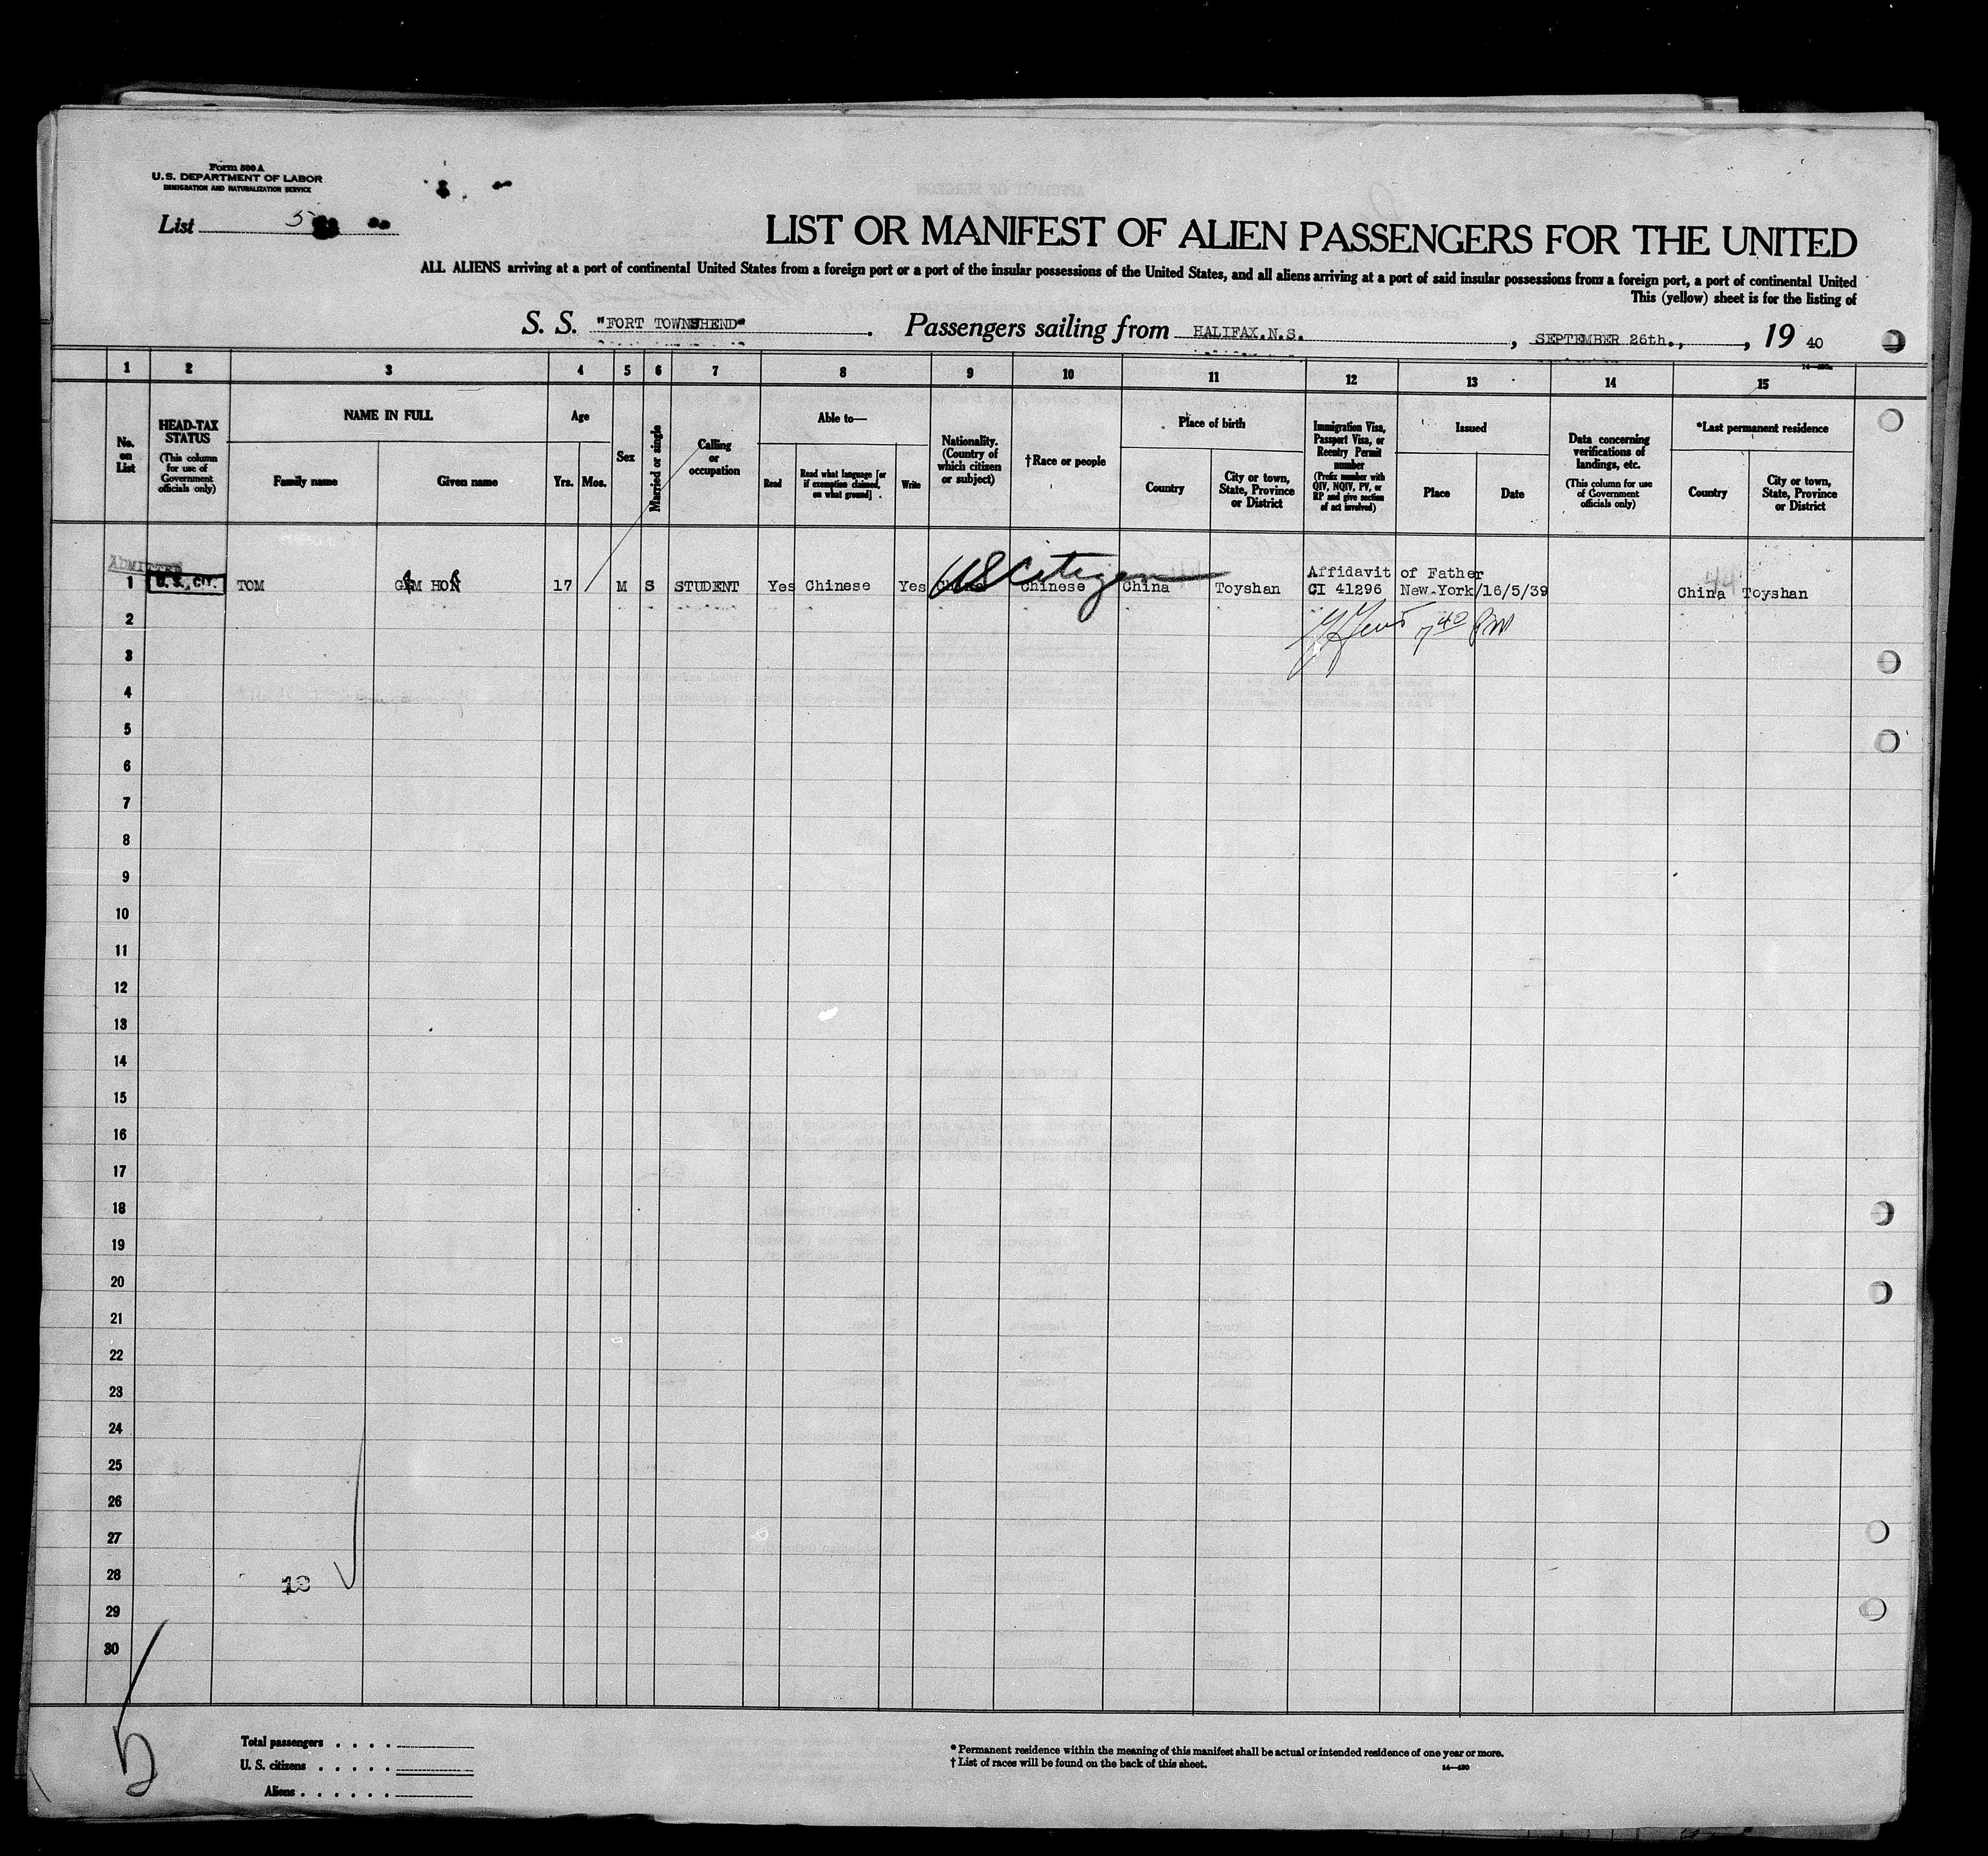 Form 500 A
U.S. DEPARTMENT OF LABOR
IMMIGRATION AND NATURALIZATION SERVICE
List 5
LIST OR MANIFEST OF ALIEN PASSENGERS FOR THE UNITED
ALL ALIENS arriving at a port of continental United States from a foreign port or a port of the insular possessions of the United States, and all aliens arriving at a port of said insular possessions from a foreign port, a port of continental United
This (yellow) sheet is for the listing of
S. S. "FORT TOWNSHEND". Passengers sailing from HALIFAX.N.S., SEPTEMBER 26th., , 19 40
1 2 3 4 5 6 7 8 9 10 11 12 13 14 15
No. on List
HEAD-TAX STATUS
(This column for use of Government officials only)
NAME IN FULL
Family name
Given name
Age
Yrs. Mos.
Sex
Married or single
Calling or occupation
Able to—
Read
Read what language [or if exemption claimed, on what ground]
Write
Nationality. (Country of which citizen or subject)
†Race or people
Place of birth
Country
City or town, State, Province or District
Immigration Visa, Passport Visa, or Reentry Permit number
(Prefix number with QIV, NQIV, PV, or RP and give section of act involved)
Issued
Place
Date
Data concerning verifications of landings, etc.
(This column for use of Government officials only)
*Last permanent residence
Country
City or town, State, Province or District
ADMITTED
1 U. S. CIT. TOM HON 17 M S STUDENT Yes Chinese Yes China US Citizen Chinese China Toyshan Affidavit of Father
CI 41296 New York/16/5/39 China Toyshan
7 40
2
3
4
5
6
7
8
9
10
11
12
13
14
15
16
17
18
19
20
21
22
23
24
25
26
27
28
29
30
5
Total passengers . . . .
U. S. citizens . . . . .
Aliens . . . . . .
* Permanent residence within the meaning of this manifest shall be actual or intended residence of one year or more.
† List of races will be found on the back of this sheet.